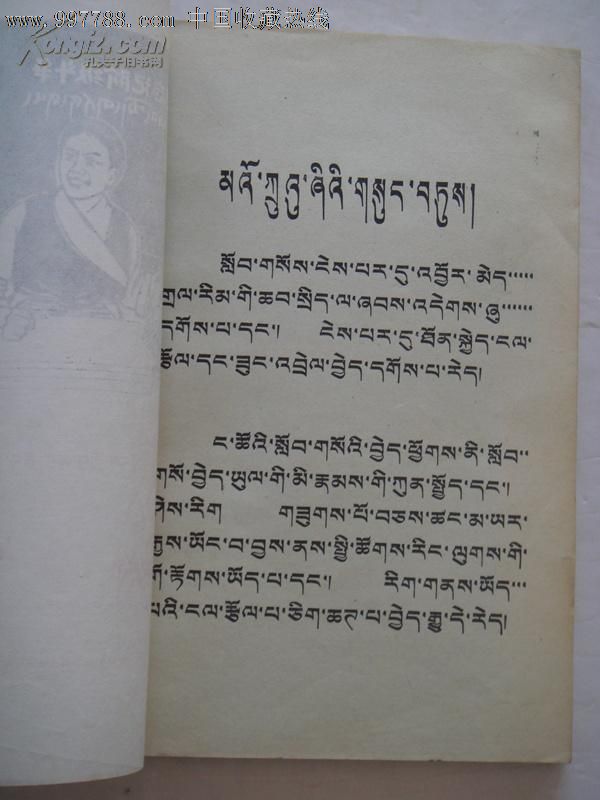 www.997788.com 中国收藏热线
Kongfz.com
孔夫子旧书网
མའོ་ཀྲུའུ་ཞིའི་གསུང་བཏུས།
སློབ་གསོས་ངེས་པར་དུ་འབྱོར་མེད་་་་་
གྲལ་རིམ་གི་ཆབ་སྲིད་ལ་ཞབས་འདེགས་ཞུ་་་་་་
དགོས་པ་དང་། ངེས་པར་དུ་ཐོན་སྐྱེད་ངལ་
རྩོལ་དང་ཟུང་འབྲེལ་བྱེད་དགོས་པ་རེད།
ང་ཚོའི་སློབ་གསོའི་བྱེད་ཕྱོགས་ནི་སློབ་་
གསོ་བྱེད་ཡུལ་གི་མི་རྣམས་གི་ཀུན་སྤྱོད་དང་།
ཤེས་རིག གཟུགས་པོ་བཅས་ཚང་མ་ཡར་
རྒྱས་ཡོང་བ་བྱས་ནས་སྤྱི་ཚོགས་རིང་ལུགས་གི་
གོ་རྟོགས་ཡོད་པ་དང་། རིག་གནས་ཡོད་་་
པའི་ངལ་རྩོལ་པ་ཅིག་ཆགས་པ་བྱེད་རྒྱུ་དེ་རེད།